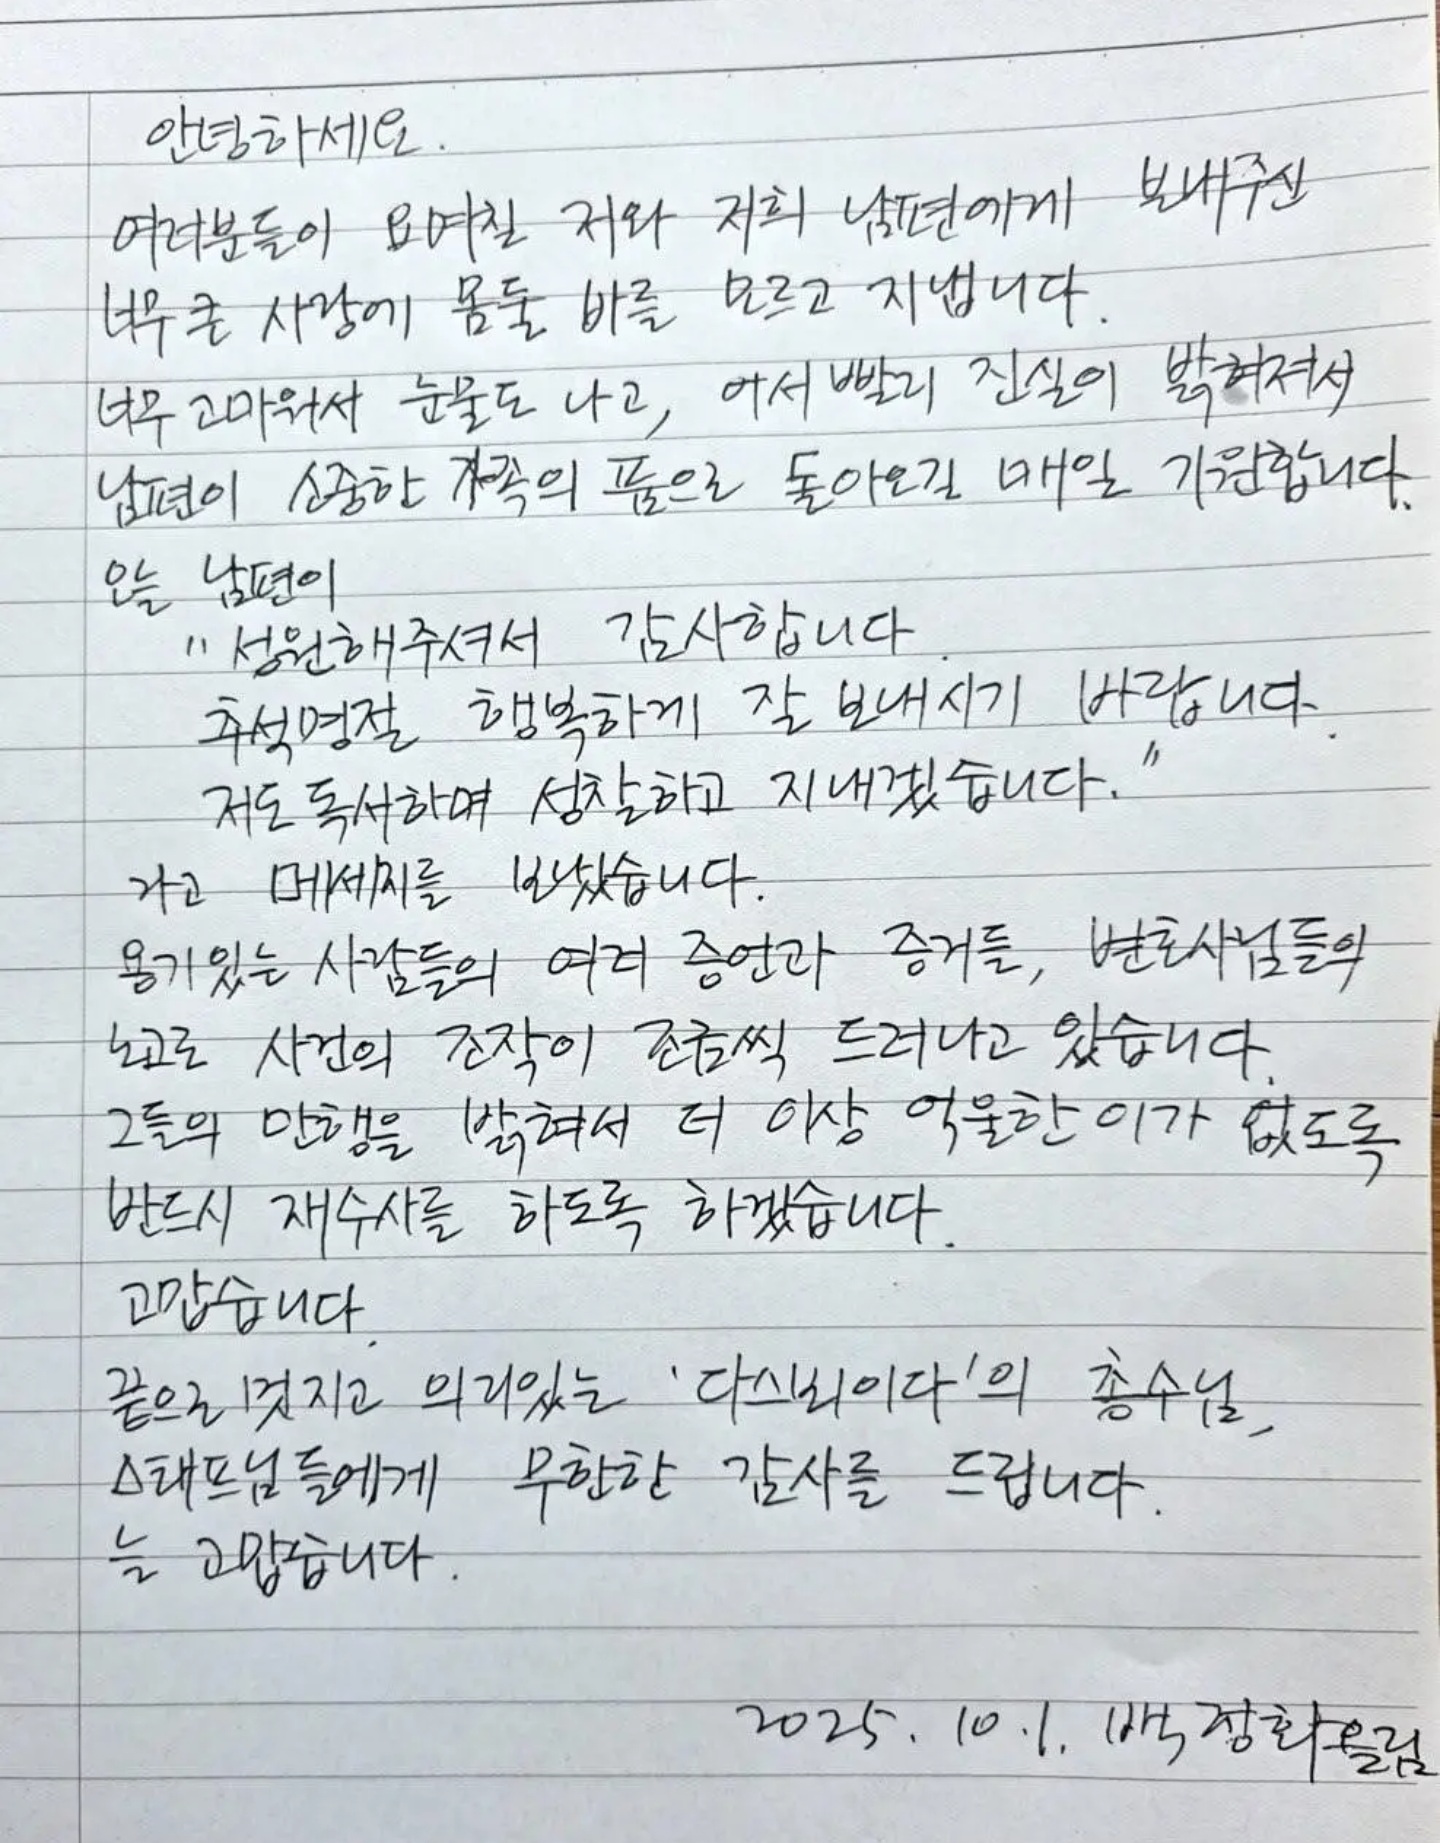 안녕하세요.
여러분들이 요며칠 저와 저희 남편에게 보내주신
너무 큰 사랑에 몸둘 바를 모르고 지냅니다.
너무 고마워서 눈물도 나고, 어서 빨리 진실이 밝혀져서
남편이 소중한 가족의 품으로 돌아오길 매일 기원합니다.
오늘 남편이
"성원해주셔서 감사합니다.
추석명절 행복하게 잘 보내시기 바랍니다.
저도 독서하며 성찰하고 지내겠습니다."
라고 메세지를 보냈습니다.
용기있는 사람들의 여러 증언과 증거들, 변호사님들의
노고로 사건의 조작이 조금씩 드러나고 있습니다.
그들의 만행을 밝혀서 더 이상 억울한 이가 없도록
반드시 재수사를 하도록 하겠습니다.
고맙습니다.
끝으로 멋지고 의리있는 '다스뵈이다'의 총수님,
스태프님들에게 무한한 감사를 드립니다.
늘 고맙습니다.
2025. 10. 1. 백정화 올림